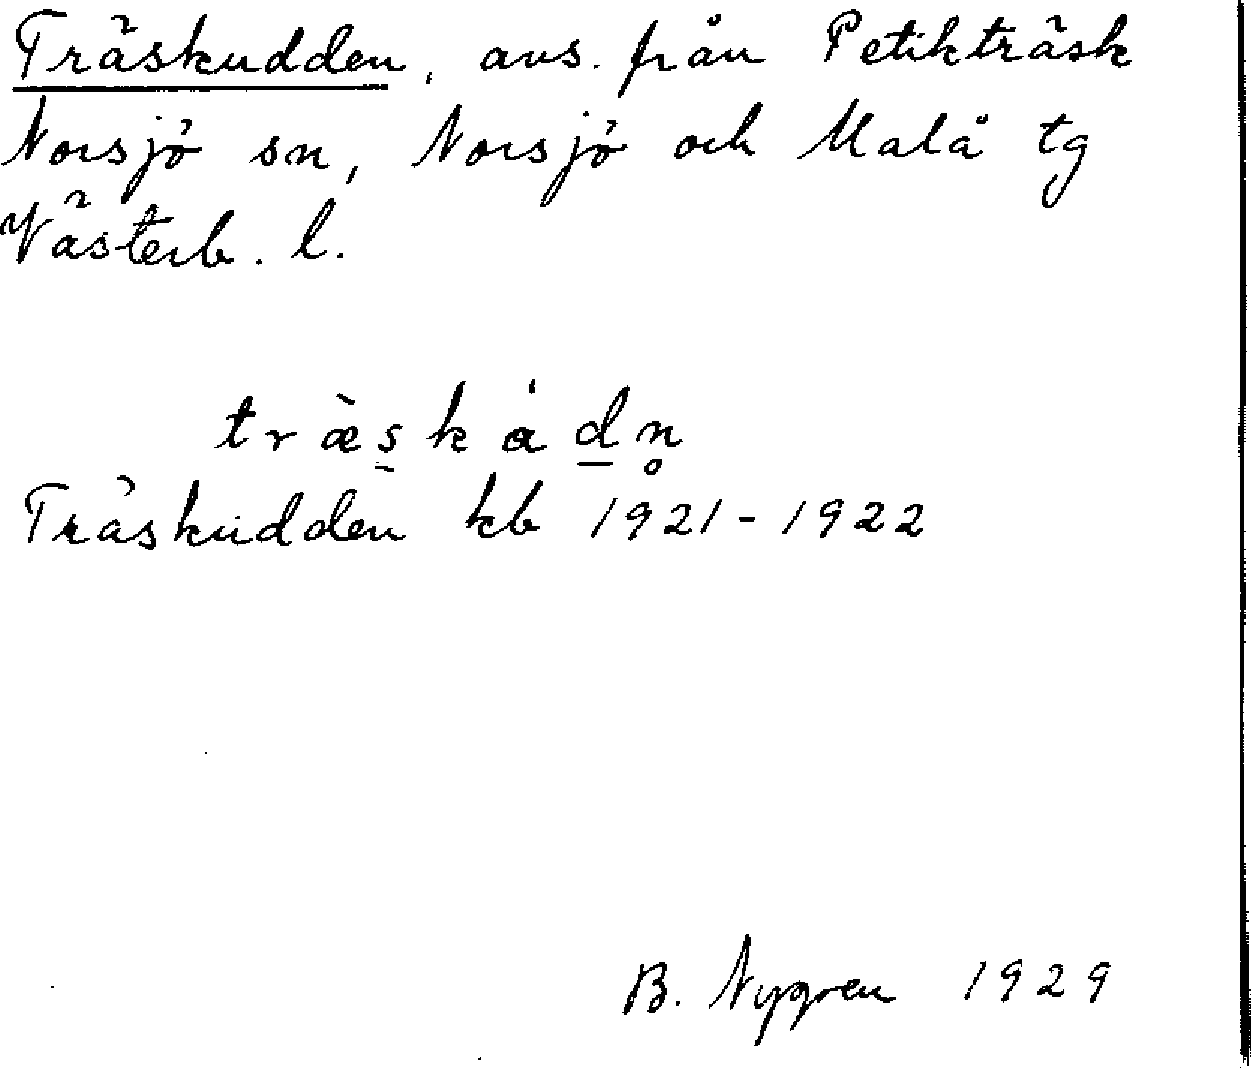 Träskudden, avs. från Petikträsk
Norsjö sn, Norsjö och Malå tg
Västerb. l.
træ̀skȧdn̥
Träskudden kb 1921-1922
B. Nygren 1929